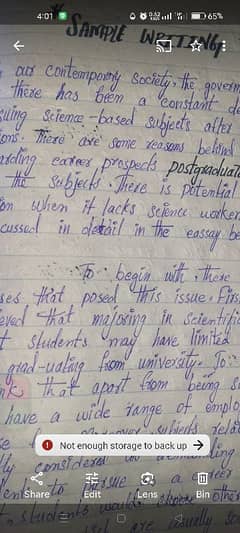 4:01
65%
SAMPLE WRITING
our contemporary society, the govern
there has been a constant de
suing science-based subjects after
ions. There are some reasons behind
arding career prospects postgraduate
the subjects. There is potential
on when it lacks science worker
cussed in detail in the eassay be
To begin with, there
ses that posed this issue. Firs
eved that majoring in scientific
t students may have limited
grad-uating from university. To
that apart from being s
have a wide range of emplo
subjects rela
Not enough storage to back up →
considered
to pursue a career
students would choose other
are usually so
Share Edit Lens Bin